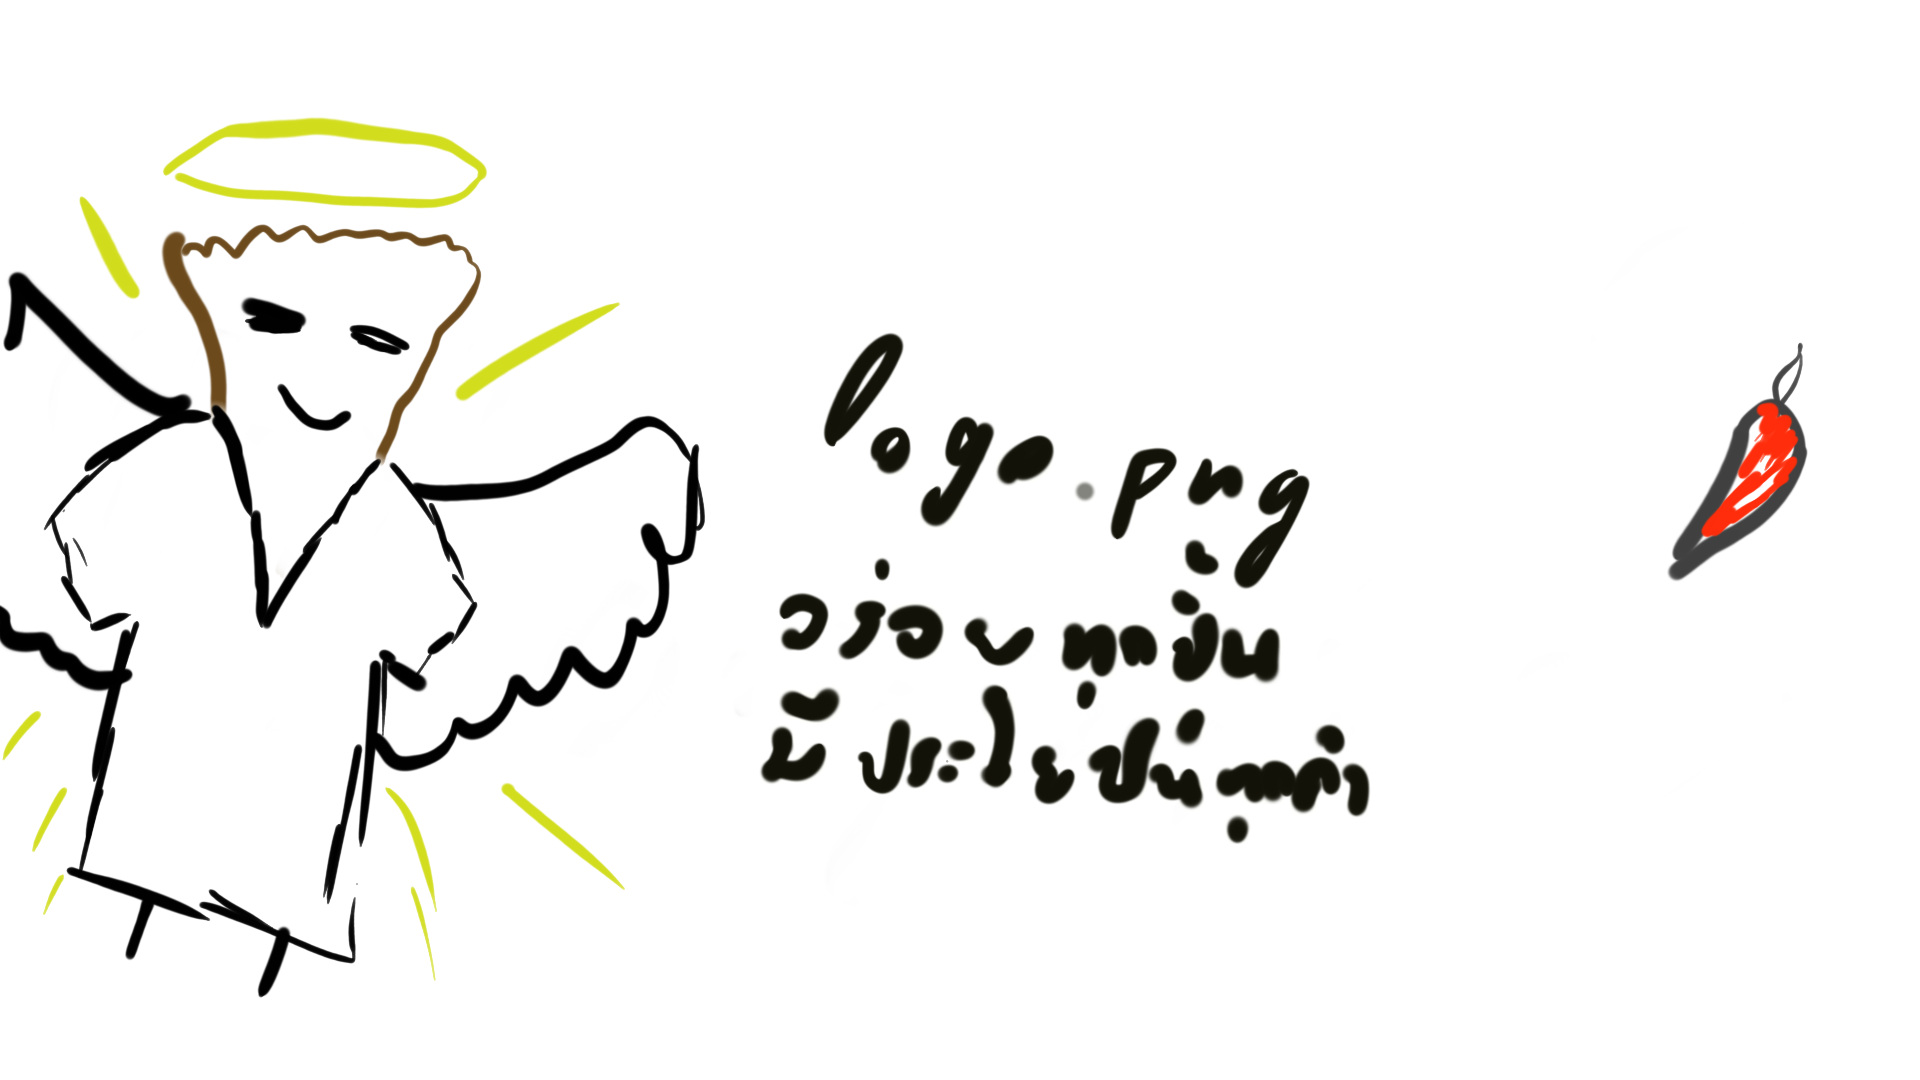 logo.png
อร่อย ทุกชิ้น
มี ประโยชน์ ทุกคำ